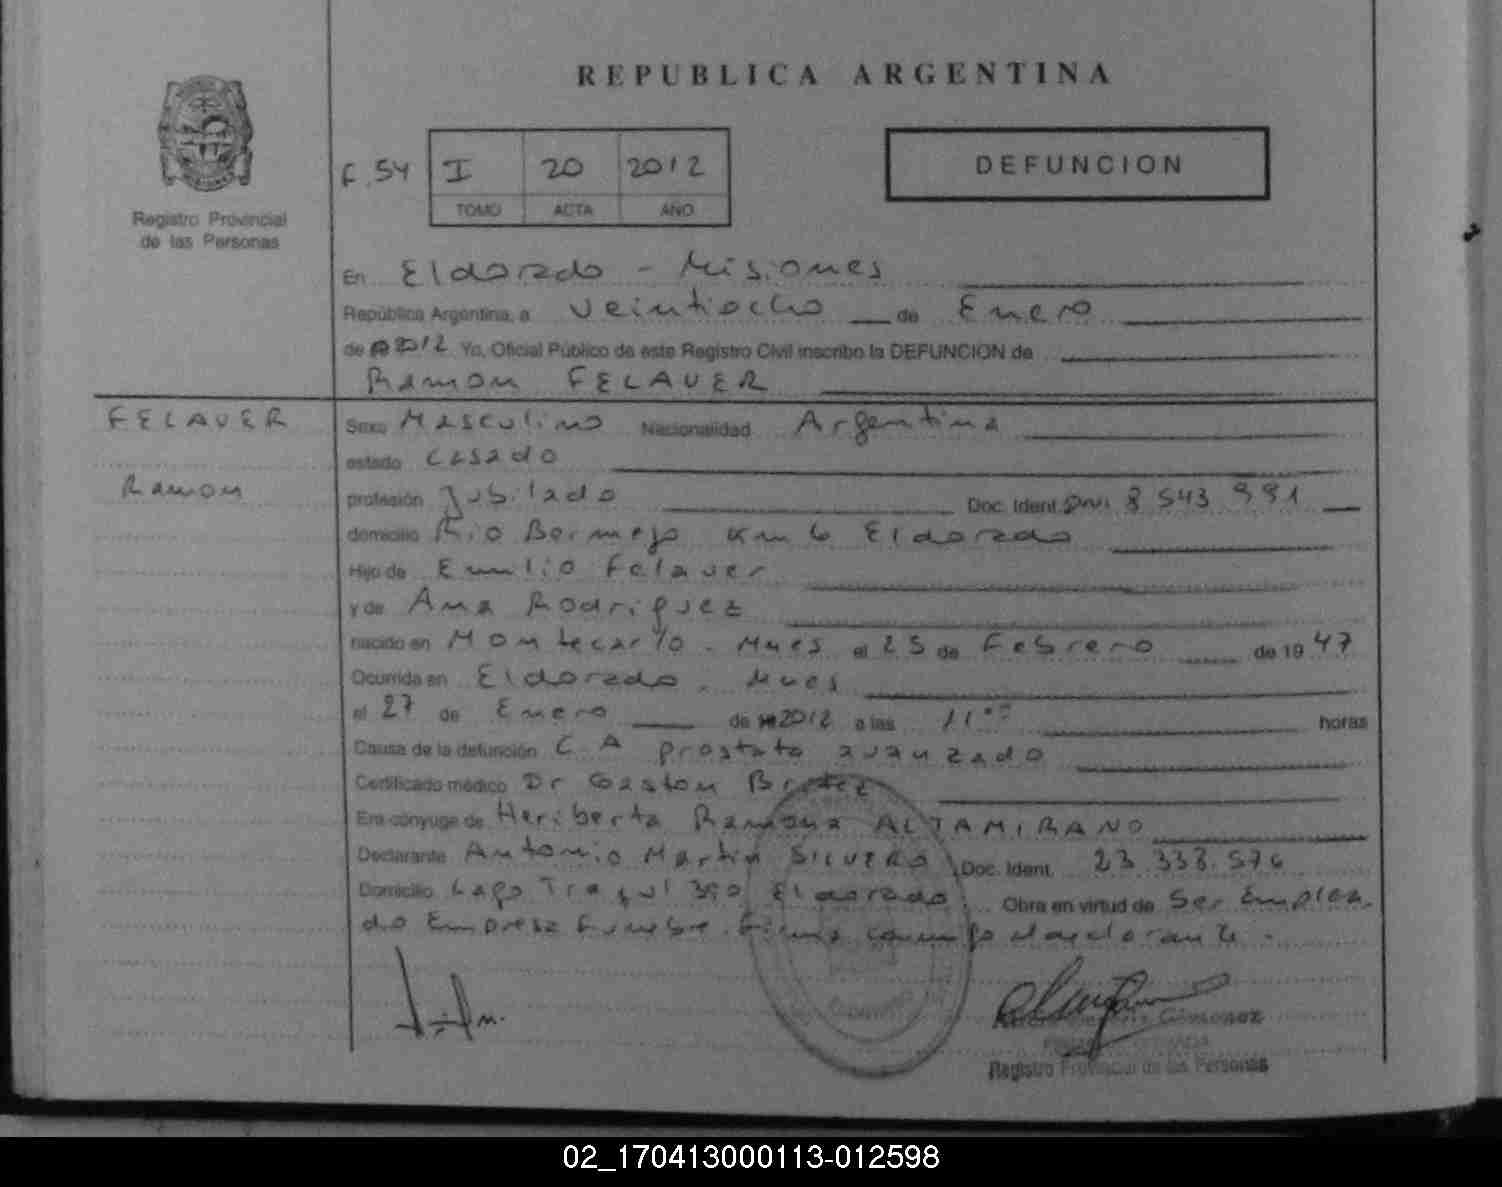 REPUBLICA ARGENTINA
Registro Provincial
de las Personas
F. 54 I 20 2012
TOMO ACTA AÑO
DEFUNCION
En Eldorado - Misiones
República Argentina, a veintiocho de Enero
de 2012 Yo, Oficial Público de este Registro Civil inscribo la DEFUNCION de
Ramon FELAUER
FELAUER
Ramon
Sexo Masculino Nacionalidad Argentina
estado casado
profesión Jubilado Doc. Ident. DNI 8 543 991
domicilio Rio Bermejo Km 6 Eldorado
Hijo de Emilio Felauer
y de Ana Rodriguez
nacido en Montecarlo - Mnes el 25 de Febrero de 19 47
Ocurrida en Eldorado. Mnes
el 27 de Enero de 2012 a las 11 horas
Causa de la defunción C A prostata avanzado
Certificado médico Dr Gaston
Era cónyuge de Heriberta Ramona ALTAMIRANO
Declarante Antonio Martin SILVERO Doc. Ident. 23 338.576
Domicilio Lago Traful 390 Eldorado. Obra en virtud de ser emplea
do Empresa Funebre. Firma conmigo el declarante -
Gimenez
Registro Provincial de las Personas
02_170413000113-012598